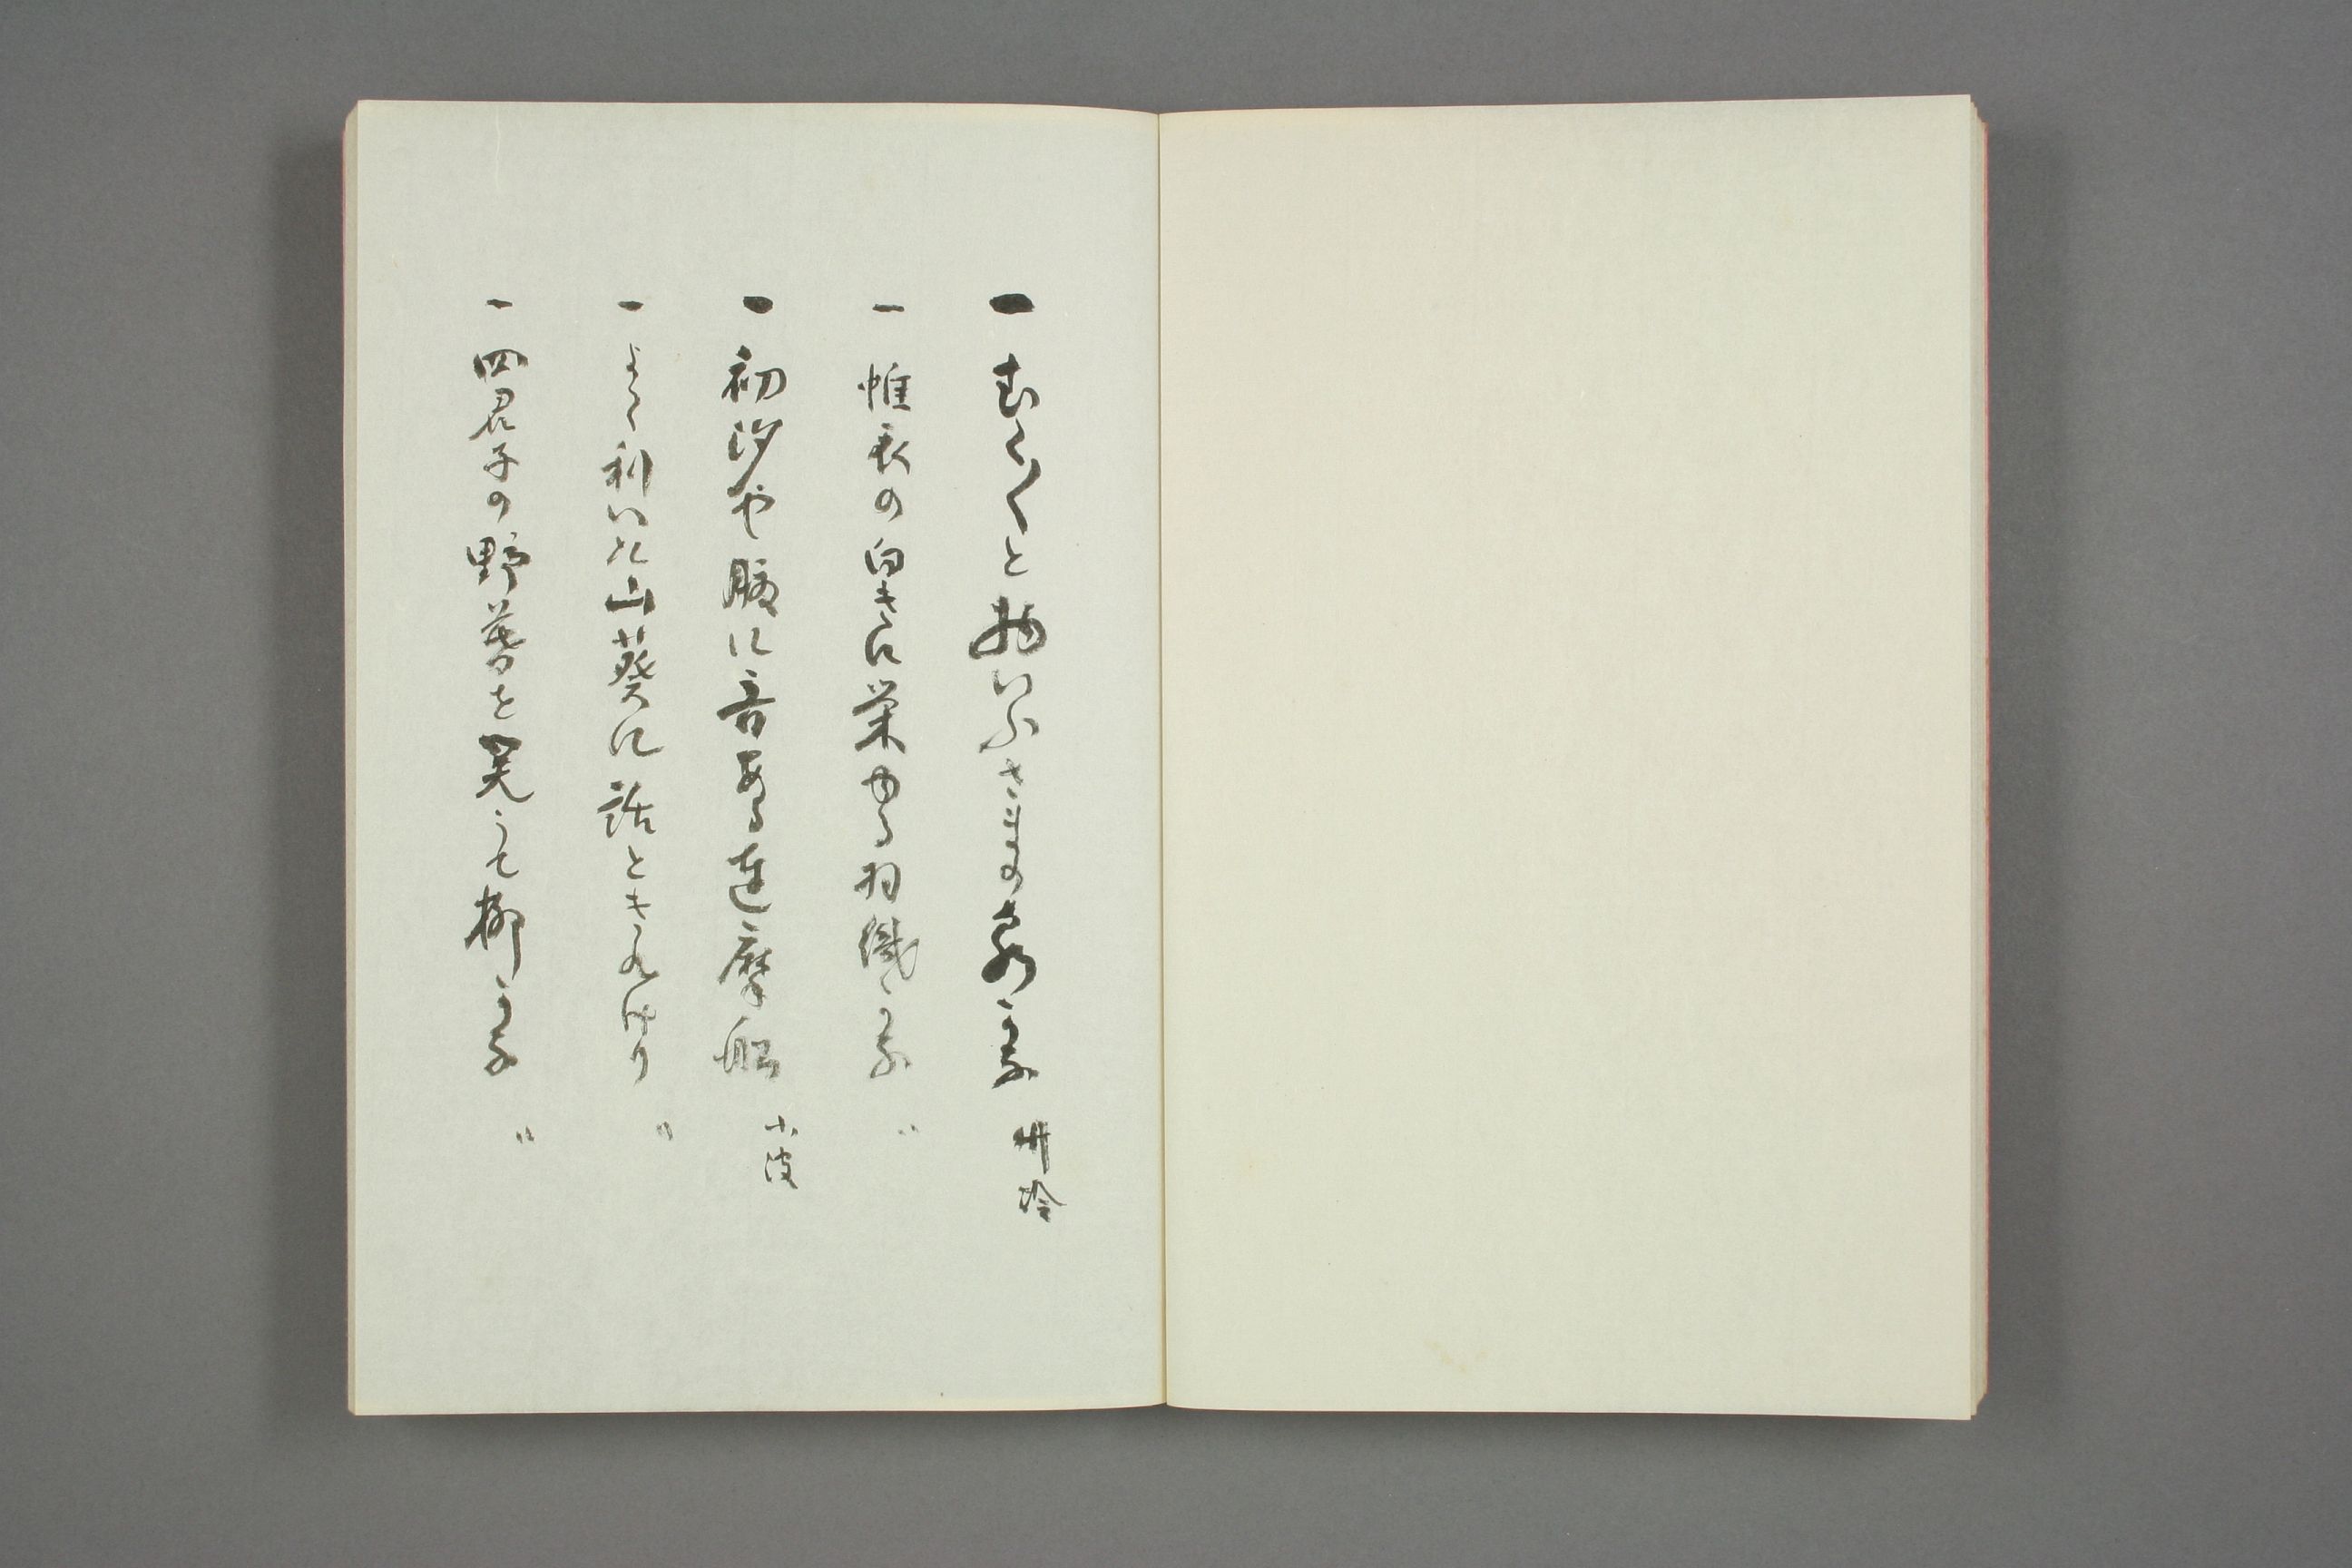 一 むく〱と物いふさまの
一 帷衣の白きに栄ゆる羽織かな 〃
一 初汐や腹に音ある達摩船 小波
一 よく利いた山葵に話ときれけり 〃
一 四君子の野暮を笑うて柳かな 〃